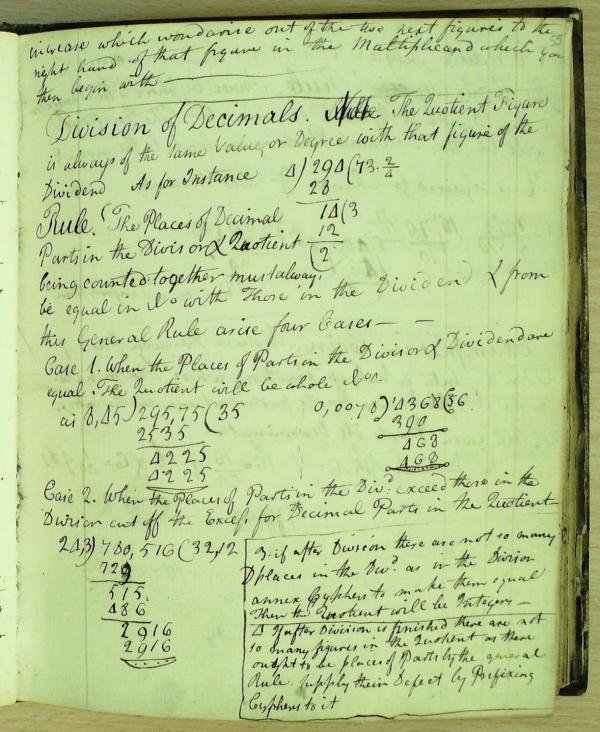 increase which wou'd arise out of the two next figures to the
55
right hand of that figure in the Multiplicand which you
then begin with
Division of Decimals. Note The Quotient Figure
is always of the same Value, or Degree with that figure of the
Dividend As for Instance 4)294(73.2/4
28
Rule. The Places of Decimal 14(3
Parts in the Divisor & Quotient 12
being counted together must always (2
be equal in No with Those in the Dividend & from
this General Rule arise four Cases
Case 1. When the Places of Parts in the Divisor & Dividend are
equal. The Quotient will be whole Nos.
as 8,45)295,75(35 0,0078),4368(56
2535 390
4225 468
4225 468
Case 2. When the Places of Parts in the Divd. exceed those in the
Divison cut off the Excess for Decimal Parts in the Quotient
24,3)780,516(32,12
729
515
486
2916
2916
3. if after Division there are not so many
places in the Divd. as in the Divison
annex Cyphers to make them equal
Then the Quotient will be Integers
4 If after Division is finished there are not
so many figures in the Quotient as there
ought to be places of Parts by the general
Rule supply their Defect by Prefixing
Cyphers to it